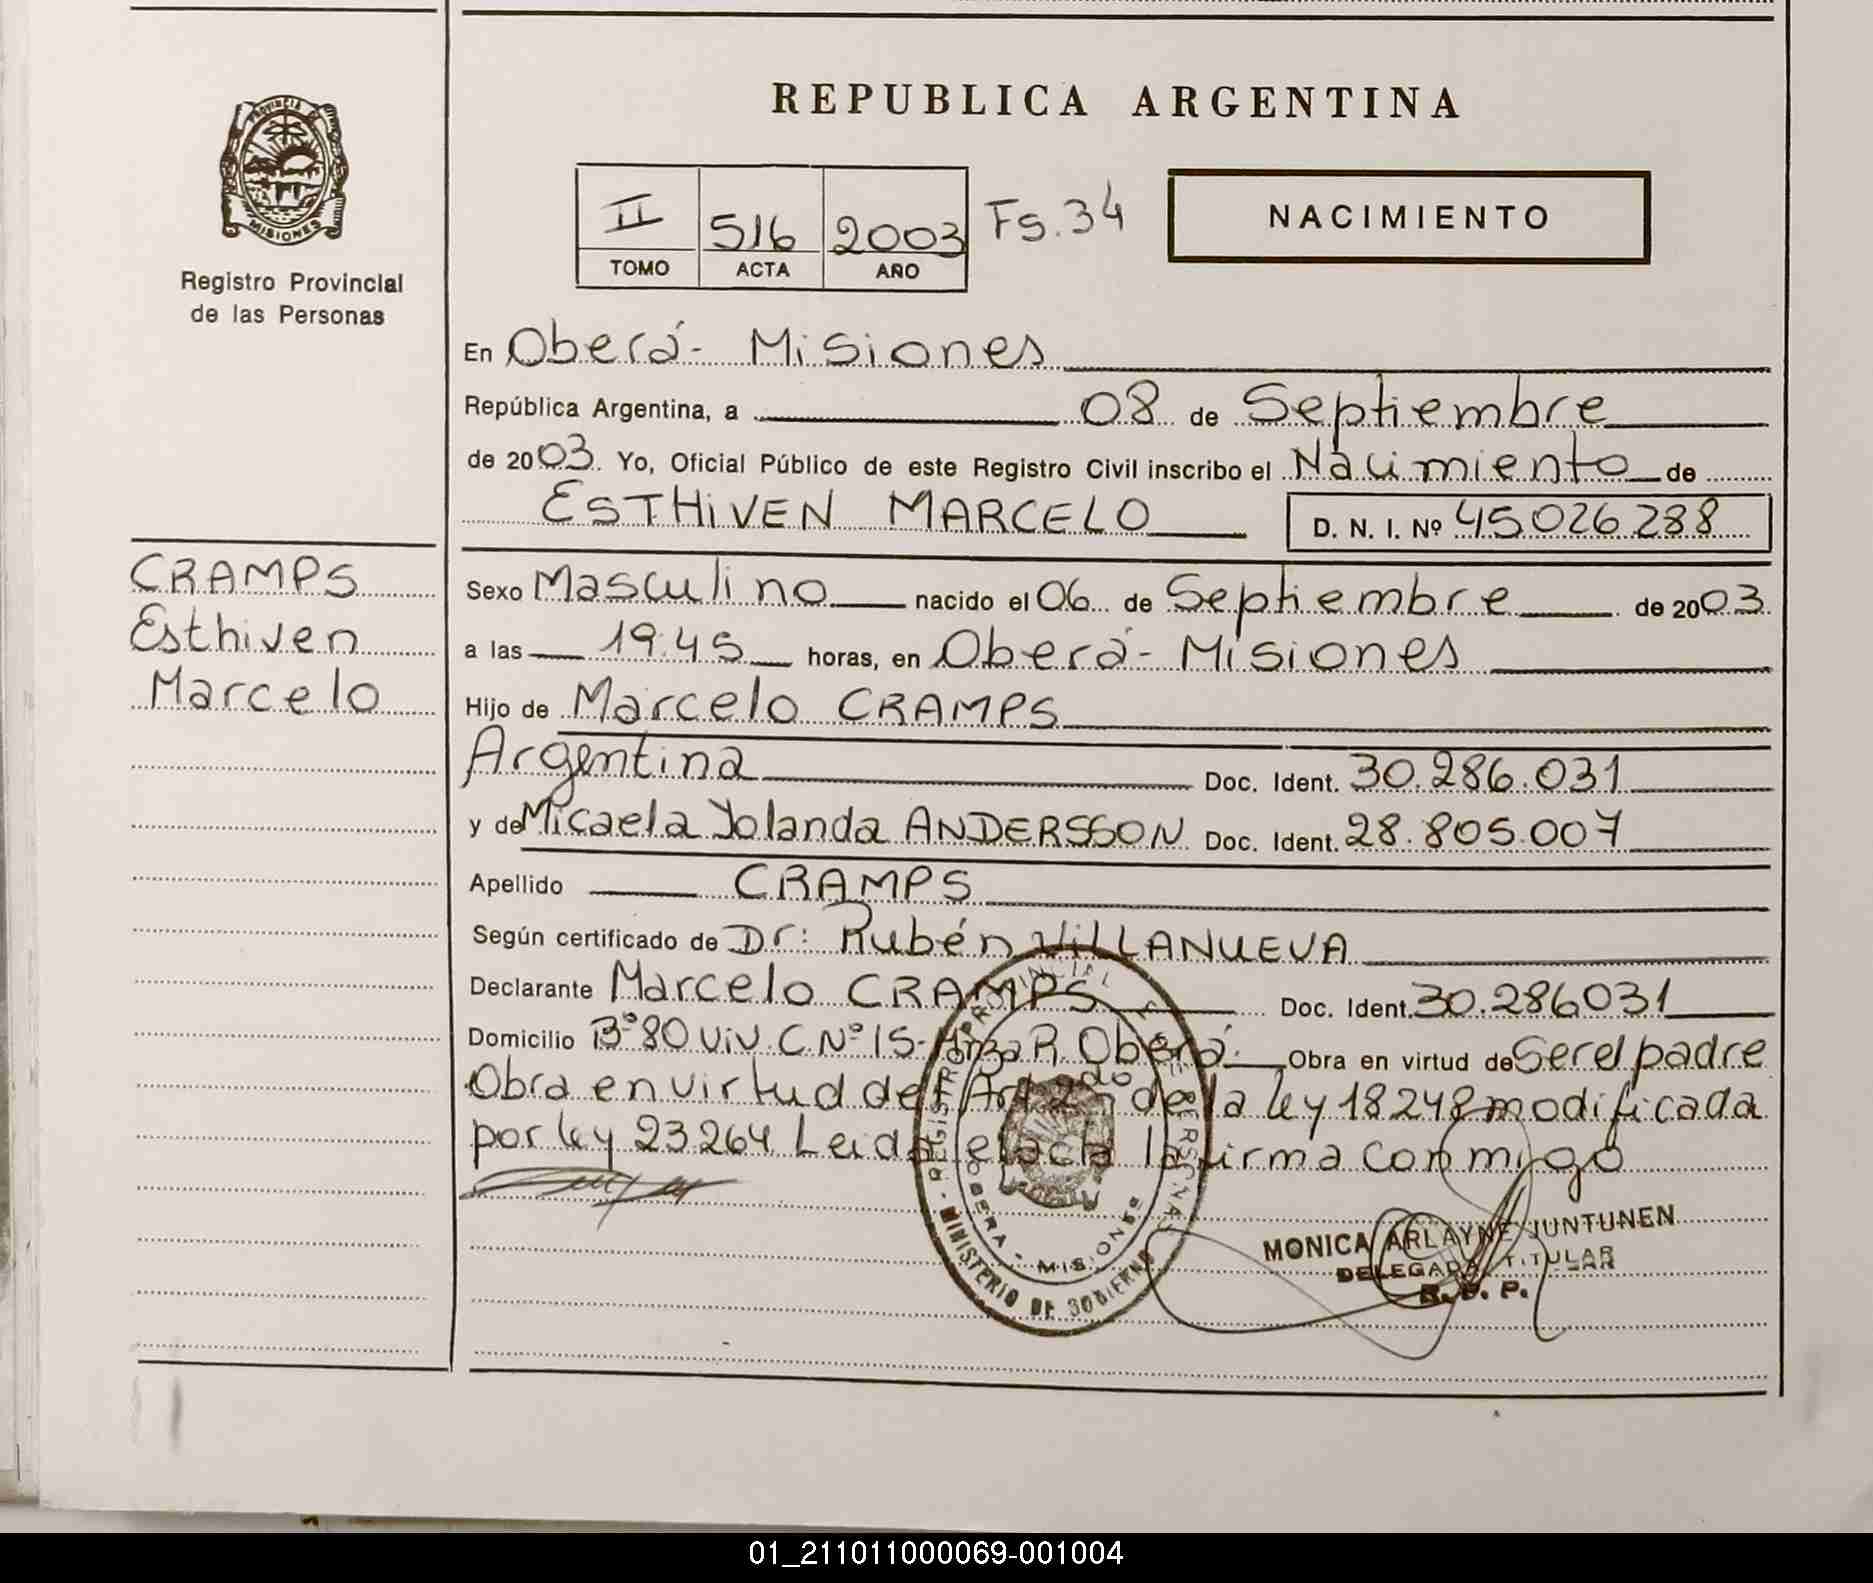 REPUBLICA ARGENTINA
PROVINCIA DE
MISIONES
Registro Provincial
de las Personas
II 516 2003 Fs.34
TOMO ACTA AÑO
NACIMIENTO
En Oberá- Misiones
República Argentina, a 08 de Septiembre
de 2003. Yo, Oficial Público de este Registro Civil inscribo el Nacimiento de
ESTHIVEN MARCELO D. N. I. Nº 45026288
CRAMPS
Esthiven
Marcelo
Sexo Masculino nacido el 06 de Septiembre de 2003.
a las 19:45 horas, en Oberá- Misiones
Hijo de Marcelo CRAMPS
Argentina Doc. Ident. 30.286.031
y de Micaela Yolanda ANDERSSON Doc. Ident. 28.805.007
Apellido CRAMPS
Según certificado de Dr: Rubén VILLANUEVA
Declarante Marcelo CRAMPS Doc. Ident. 30.286031
Domicilio Bº 80 viv. C Nº 15- Manza R. Oberá. Obra en virtud de Ser el padre
Obra en virtud del Art 2do de la ley 18248 modificada
por ley 23264 Leida el acta la firma conmigo
REGISTRO PROVINCIAL DE LAS PERSONAS
OBERA - MISIONES
MINISTERIO DE GOBIERNO
MONICA ARLAYNE JUNTUNEN
DELEGADA TITULAR
R. P. P.
01_211011000069-001004